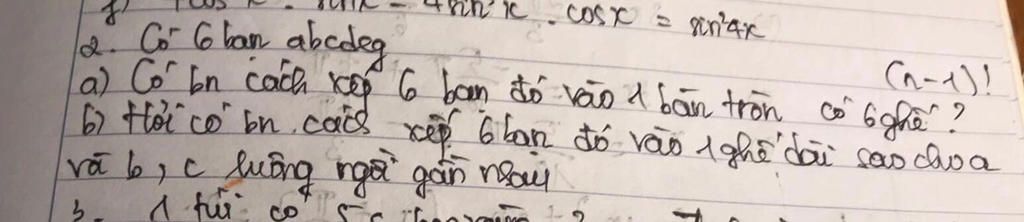 cosx = sin²4x
2. Có 6 bạn abcdeg
a) Có bn cách xếp 6 bạn đó vào 1 bàn tròn có 6 ghế? (n-1)!
b) Hỏi có bn cách xếp 6 bạn đó vào 1 ghế dài sao cho a
và b, c luông ngồi gần nhau
3. 1 túi có 5